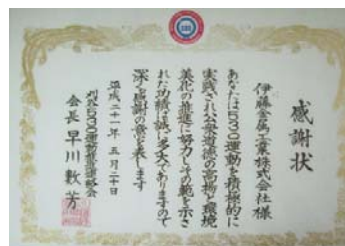 感謝状
伊藤金属工業株式会社様
あなたは530運動を積極的に
実践され公衆道徳の高揚と環境
美化の推進に努力しその範を示さ
れた功績は誠に多大でありますので
深く感謝の意を表します
平成二十一年 五月二十日
刈谷530運動推進連絡会
会長 早川敷芳